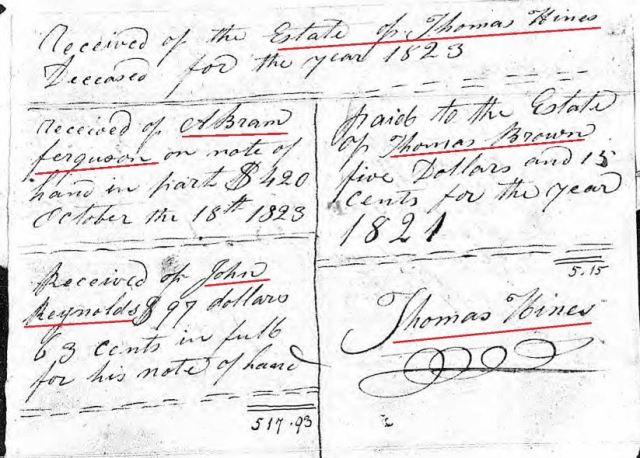 Received of the Estate of Thomas Hines
Deceased for the year 1823
Received of ABram
ferguson on note of
hand in part $ 420
October the 18th 1823
Received of John
Reynolds $ 97 dollars
63 cents in full
for his note of hand
517.93
paid to the Estate
of Thomas Brown
five Dollars and 15
cents for the year
1821
5.15
Thomas Hines